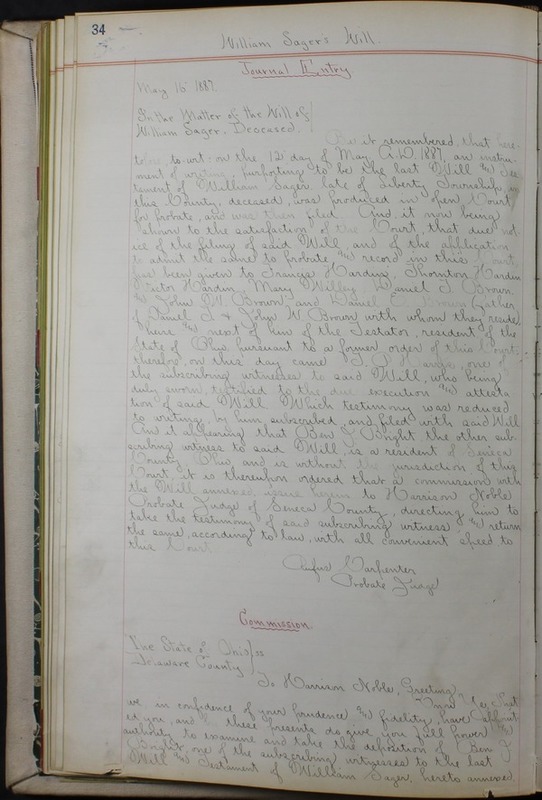 34
William Sager's Will.
Journal Entry
May 16 1887.
In the Matter of the Will of
William Sager, Deceased.
Be it remembered, that here-
tofore, to-wit: on the 12 day of May A.D. 1887, an instru-
ment of writing, purporting to be the last Will and Tes-
tament of William Sager late of Liberty Township, in
this County, deceased, was produced in open Court
for probate, and was then filed. And it now being
shown to the satisfaction of the Court, that due not-
ice of the filing of said Will, and of the application
to admit the same to probate, and record in this Court
has been given to Francis Hardin, Thornton Hardin
Victor Hardin, Mary Willey, Daniel T. Brown,
and John W. Brown and Daniel Brown (father
of Daniel T. & John W. Brown with whom they reside,
heirs and next of kin of the Testator, resident of the
State of Ohio pursuant to a former order of this Court;
therefor, on this day came one of
the subscribing witnesses to said Will, who being
duly sworn, testified to the due execution and attesta-
tion of said Will. Which testimony was reduced
to writing, by him subscribed, and filed with said Will
And it appearing that Ben F. Bright the other sub-
scribing witness to said Will, is a resident of Seneca
County Ohio, and is without the jurisdiction of this
Court, it is thereupon ordered that a commission with
the Will annexed, issue herein to Harrison Noble
Probate Judge of Seneca County, directing him to
take the testimony of said subscribing witness and return
the same, according to law, with all convenient speed to
this Court.
Rufus Carpenter
Probate Judge
Commission.
The State of Ohio ss
Delaware County
To Harrison Noble, Greeting,
Know Ye, That
we, in confidence of your prudence and fidelity, have appoint-
ed you, and by these presents do give you full power and
authority to examine and take the deposition of Ben F.
Bright, one of the subscribing witnesses to the last
Will and Testament of William Sager, hereto annexed